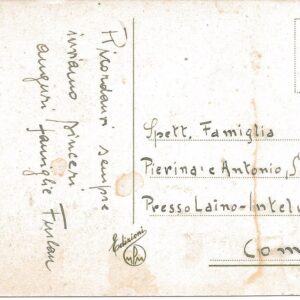 Ricordarvi sempre
inviamo sinceri
auguri famiglie Furlan
Edizioni
Spett. Famiglia
Pierina e Antonio, S
Presso Laino-Intelv
Com